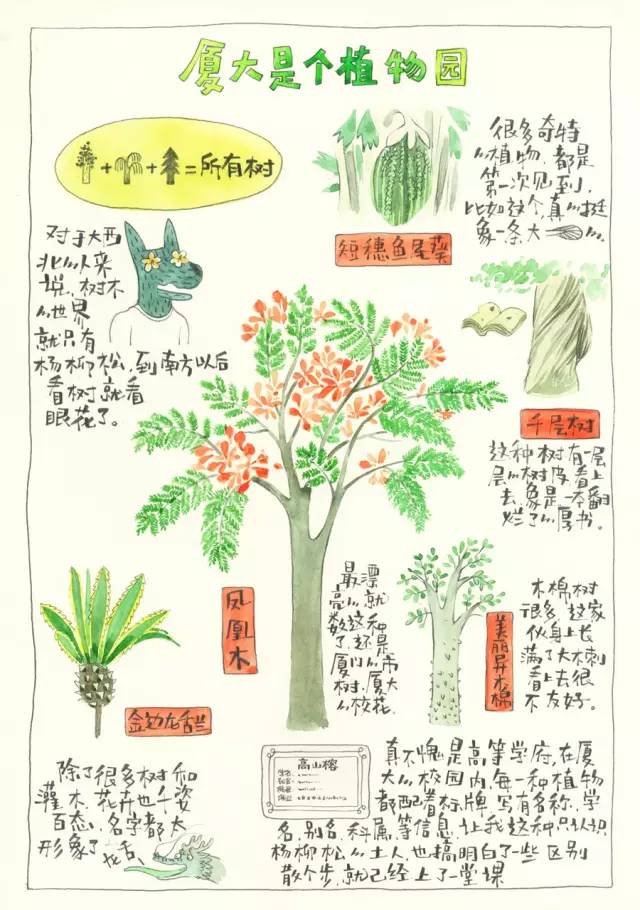 厦大是个植物园
++=所有树
很多奇特
的植物,都是
第一次见到,
比如这个,真的挺
象一条大的。
短穗鱼尾葵
对于大西
北的人来
说,树木
的世界
就只有
杨柳松,到南方以后
看树就看
眼花了。
千层树
这种树有一层
层的树皮,看上
去,象是一本翻
烂了的厚书。
凤凰木
最漂
亮的就
数这种
了,还是
厦门的市
树,厦大
的校花.
美丽异木棉
木棉树
很多,这家
伙身上长
满了大木刺
看上去很
不友好。
金边龙舌兰
除了很多树和
灌木,花卉也千姿
百态,名字都太
形象了
龙舌
高山榕
真不愧是高等学府,在厦
大的校园内,每一种植物
都配着标牌,写有名称、学
名、别名、科属、等信息,让我这种只认识
杨柳松的土人,也搞明白了一些区别
散个步,就已经上了一堂课